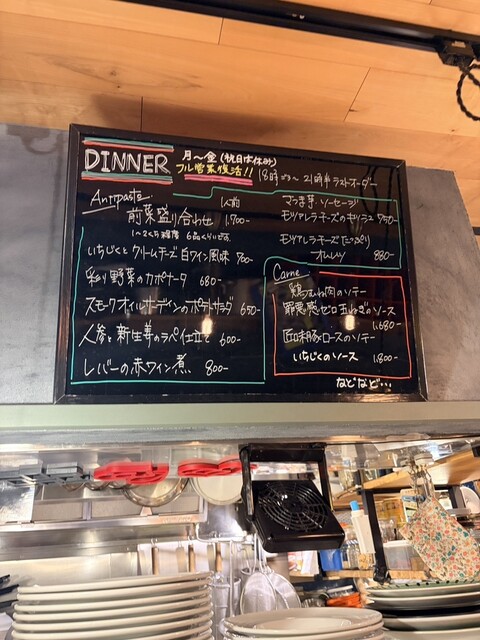 DINNER
月〜金(祝日休み)
フル営業復活!!
18時〜21時半ラストオーダー
Antipasto
1人前
前菜盛り合わせ 1,700-
1〜2くち程度 6品くらいです。
いちじくとクリームチーズ 白ワイン風味 700-
彩り野菜のカポナータ 680-
スモークオイルサーディンのポテトサラダ 650-
人参と新生姜のラペ仕立て 600-
レバーの赤ワイン煮 800-
ソーセージ
モツァレラチーズの
モツァレラチーズ
オムレツ 880-
Carne
鶏むね肉のソテー
罪悪感ゼロ玉ねぎのソース
1,680-
豚ロースのソテー
いちじくのソース 1,800-
などなど…